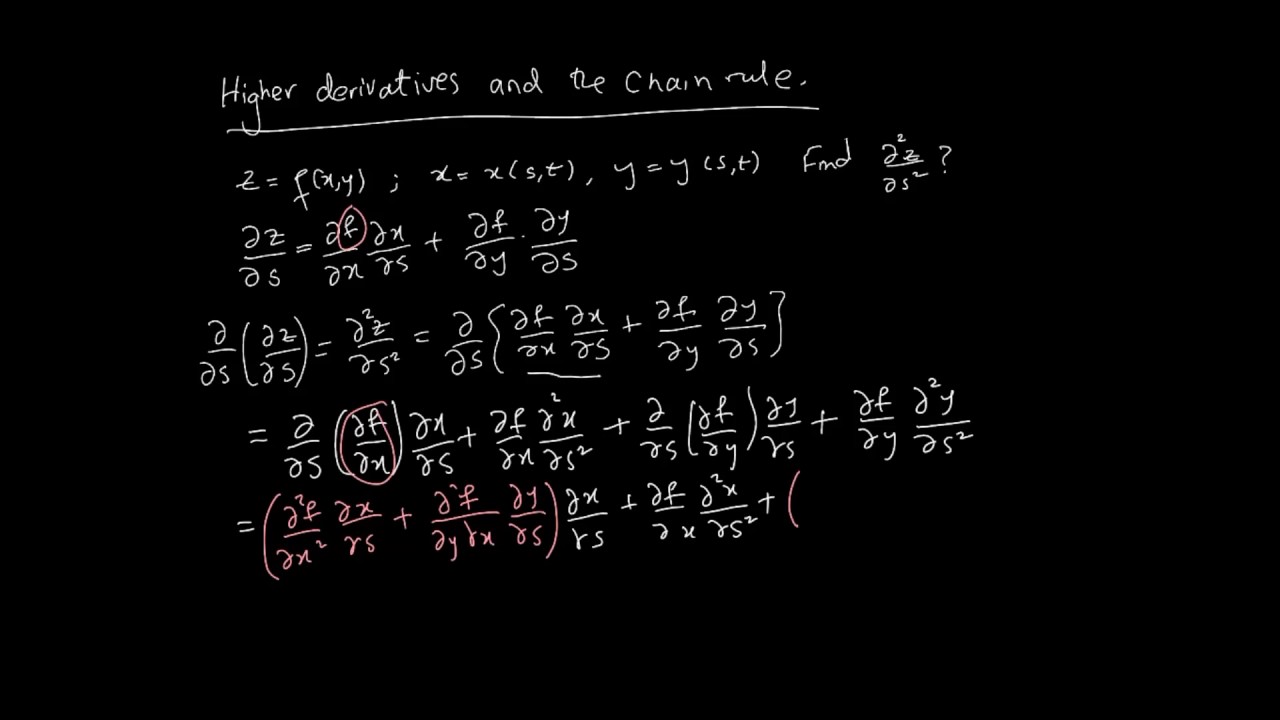 Higher derivatives and the Chain rule.
z = f(x,y) ; x = x(s,t), y = y(s,t) Find ∂²z/∂s² ?
∂z/∂s = ∂f/∂x ∂x/∂s + ∂f/∂y · ∂y/∂s
∂/∂s (∂z/∂s) = ∂²z/∂s² = ∂/∂s { ∂f/∂x ∂x/∂s + ∂f/∂y ∂y/∂s }
= ∂/∂s (∂f/∂x) ∂x/∂s + ∂f/∂x ∂²x/∂s² + ∂/∂s (∂f/∂y) ∂y/∂s + ∂f/∂y ∂²y/∂s²
= ( ∂²f/∂x² ∂x/∂s + ∂²f/∂y∂x ∂y/∂s ) ∂x/∂s + ∂f/∂x ∂²x/∂s² + (